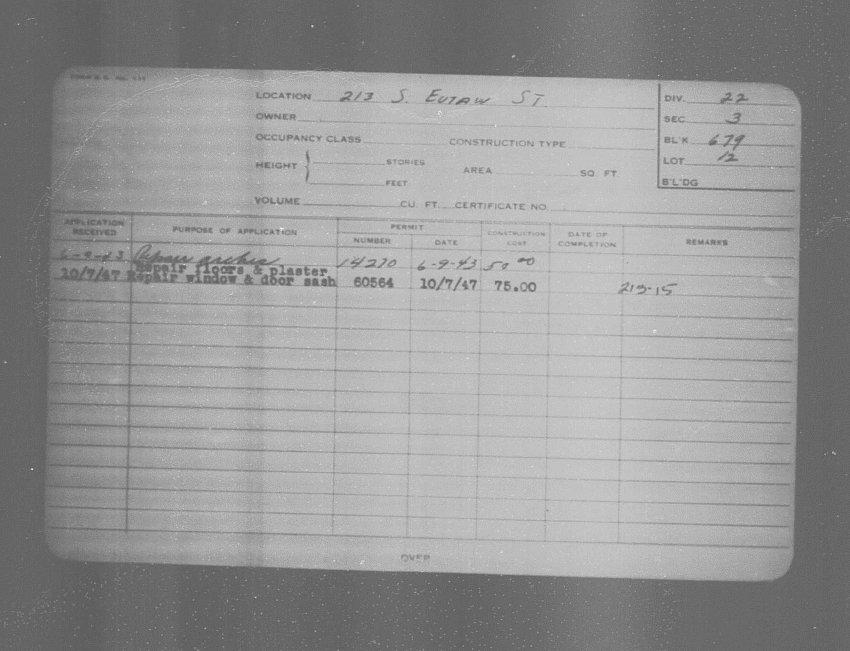 LOCATION 213 S. EUTAW ST
OWNER
OCCUPANCY CLASS CONSTRUCTION TYPE
HEIGHT STORIES FEET AREA SQ. FT
VOLUME CU. FT. CERTIFICATE NO.
DIV. 22
SEC 3
BL'K 679
LOT 12
B'L'DG
APPLICATION RECEIVED PURPOSE OF APPLICATION PERMIT NUMBER DATE CONSTRUCTION COST DATE OF COMPLETION REMARKS
6-9-43 Repair 14270 6-9-43 50 00
Repair floors & plaster
10/7/47 Repair window & door sash 60564 10/7/47 75.00 213-15
OVER